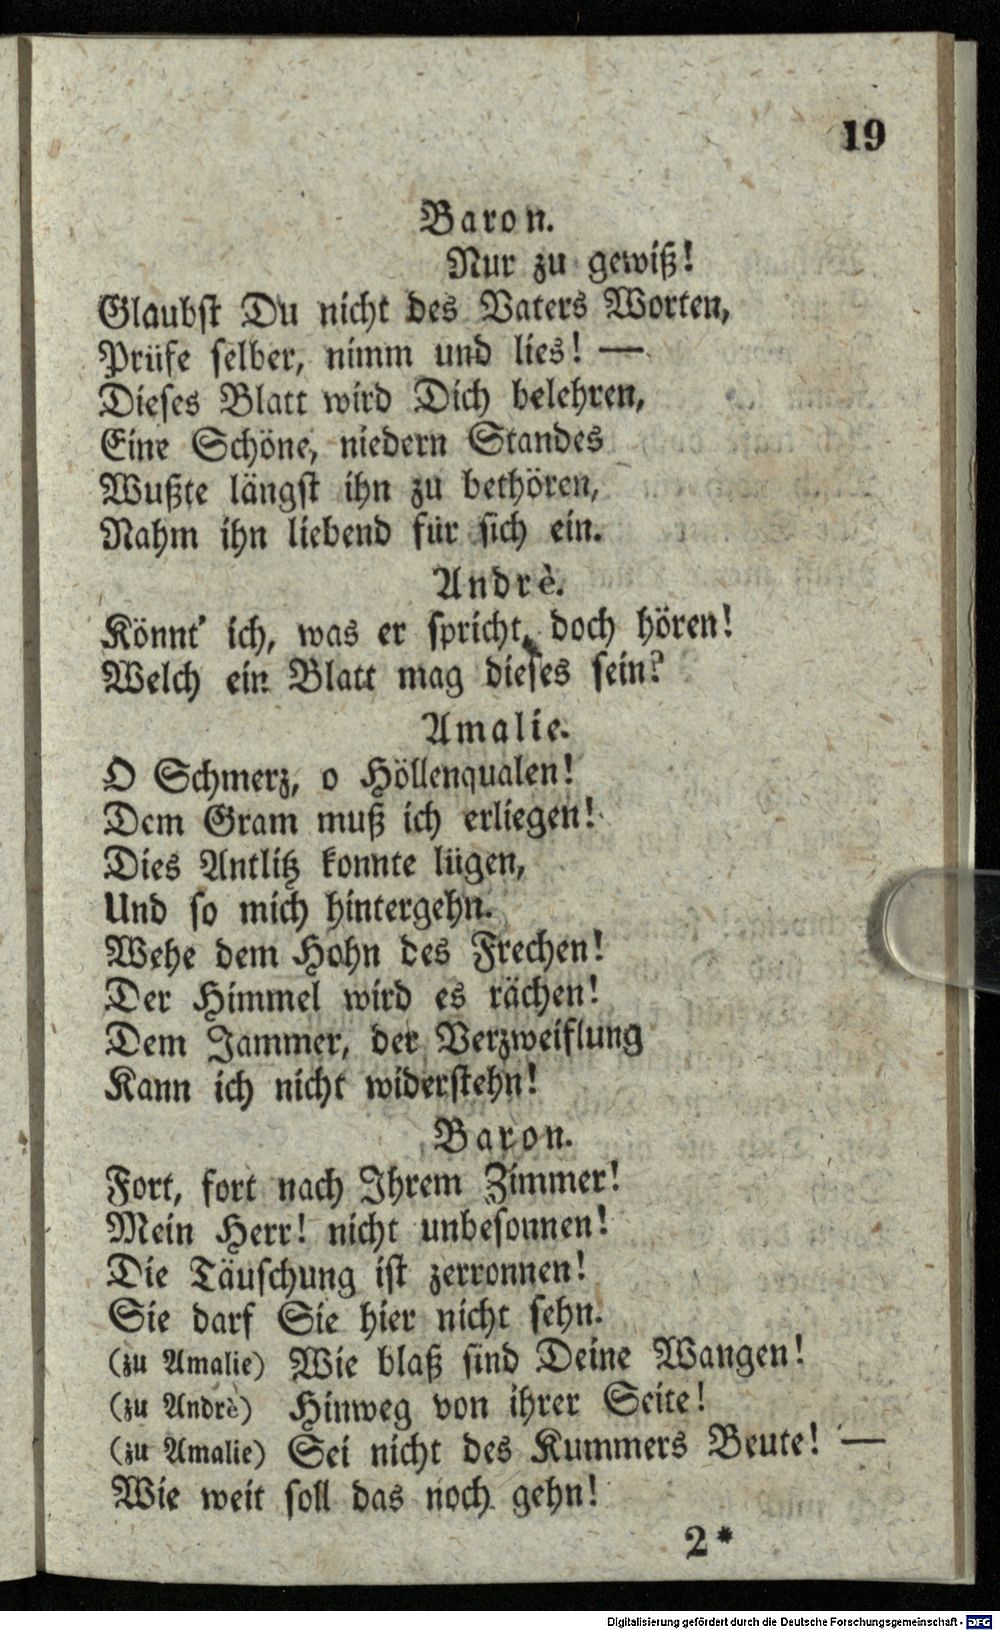 19
Baron.
Nur zu gewiß!
Glaubst Du nicht des Vaters Worten,
Prüfe selber, nimm und lies! —
Dieses Blatt wird Dich belehren,
Eine Schöne, niedern Standes
Wußte längst ihn zu bethören,
Nahm ihn liebend für sich ein.
Andrè.
Könnt' ich, was er spricht, doch hören!
Welch ein Blatt mag dieses sein?
Amalie.
O Schmerz, o Höllenqualen!
Dem Gram muß ich erliegen!
Dies Antlitz konnte lügen,
Und so mich hintergehn.
Wehe dem Hohn des Frechen!
Der Himmel wird es rächen!
Dem Jammer, der Verzweiflung
Kann ich nicht widerstehn!
Baron.
Fort, fort nach Ihrem Zimmer!
Mein Herr! nicht unbesonnen!
Die Täuschung ist zerronnen!
Sie darf Sie hier nicht sehn.
(zu Amalie) Wie blaß sind Deine Wangen!
(zu Andrè) Hinweg von ihrer Seite!
(zu Amalie) Sei nicht des Kummers Beute! —
Wie weit soll das noch gehn!
2*
Digitalisierung gefördert durch die Deutsche Forschungsgemeinschaft - DFG